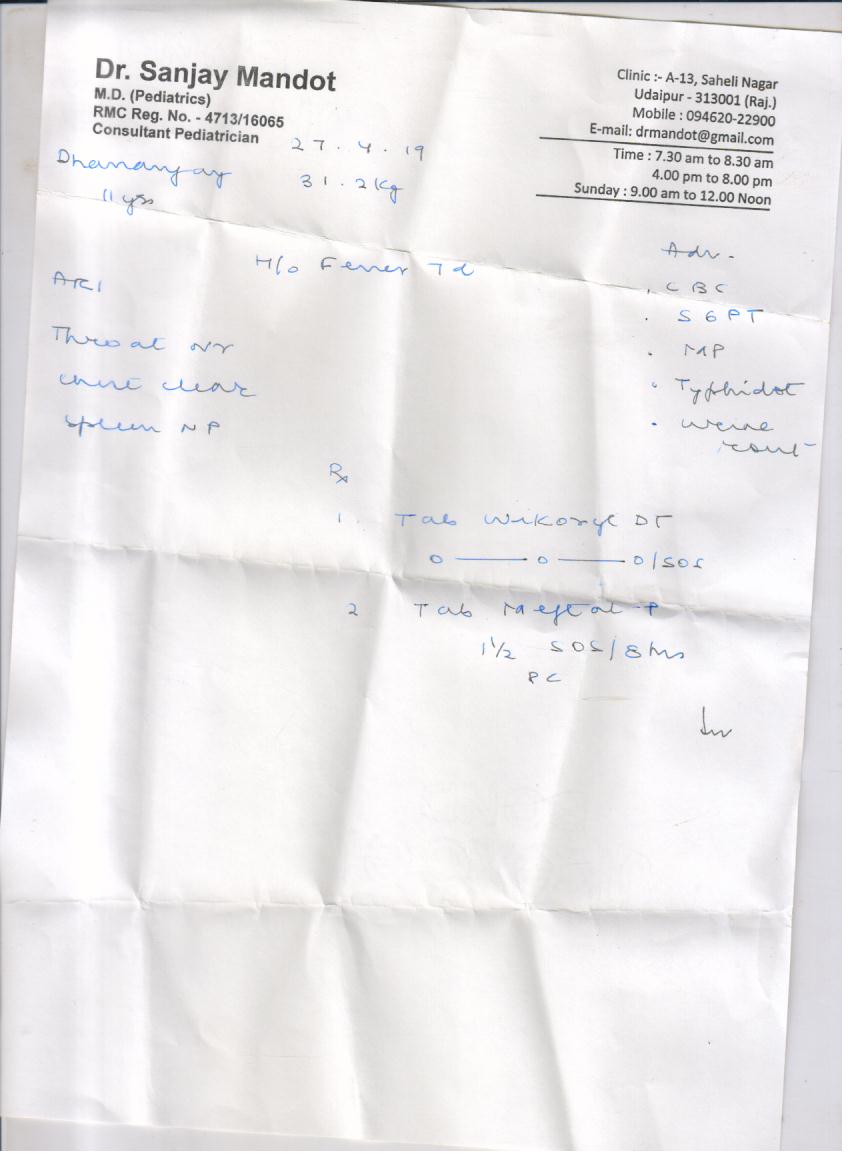 Dr. Sanjay Mandot
M.D. (Pediatrics)
RMC Reg. No. - 4713/16065
Consultant Pediatrician
Clinic :- A-13, Saheli Nagar
Udaipur - 313001 (Raj.)
Mobile : 094620-22900
E-mail: drmandot@gmail.com
Time : 7.30 am to 8.30 am
4.00 pm to 8.00 pm
Sunday : 9.00 am to 12.00 Noon
27.4.19
Dhananjay 31.2kg
11 yrs
H/o Fever 7d
Adv -
. CBC
. SGPT
. MP
. Typhidot
. Urine
Throat
Chest clear
Spleen NP
Rx
1. Tab Wikoryl DT
0 — 0 — 0/SOS
2 Tab Meftal-P
1 1/2 SOS/8 hrs
PC